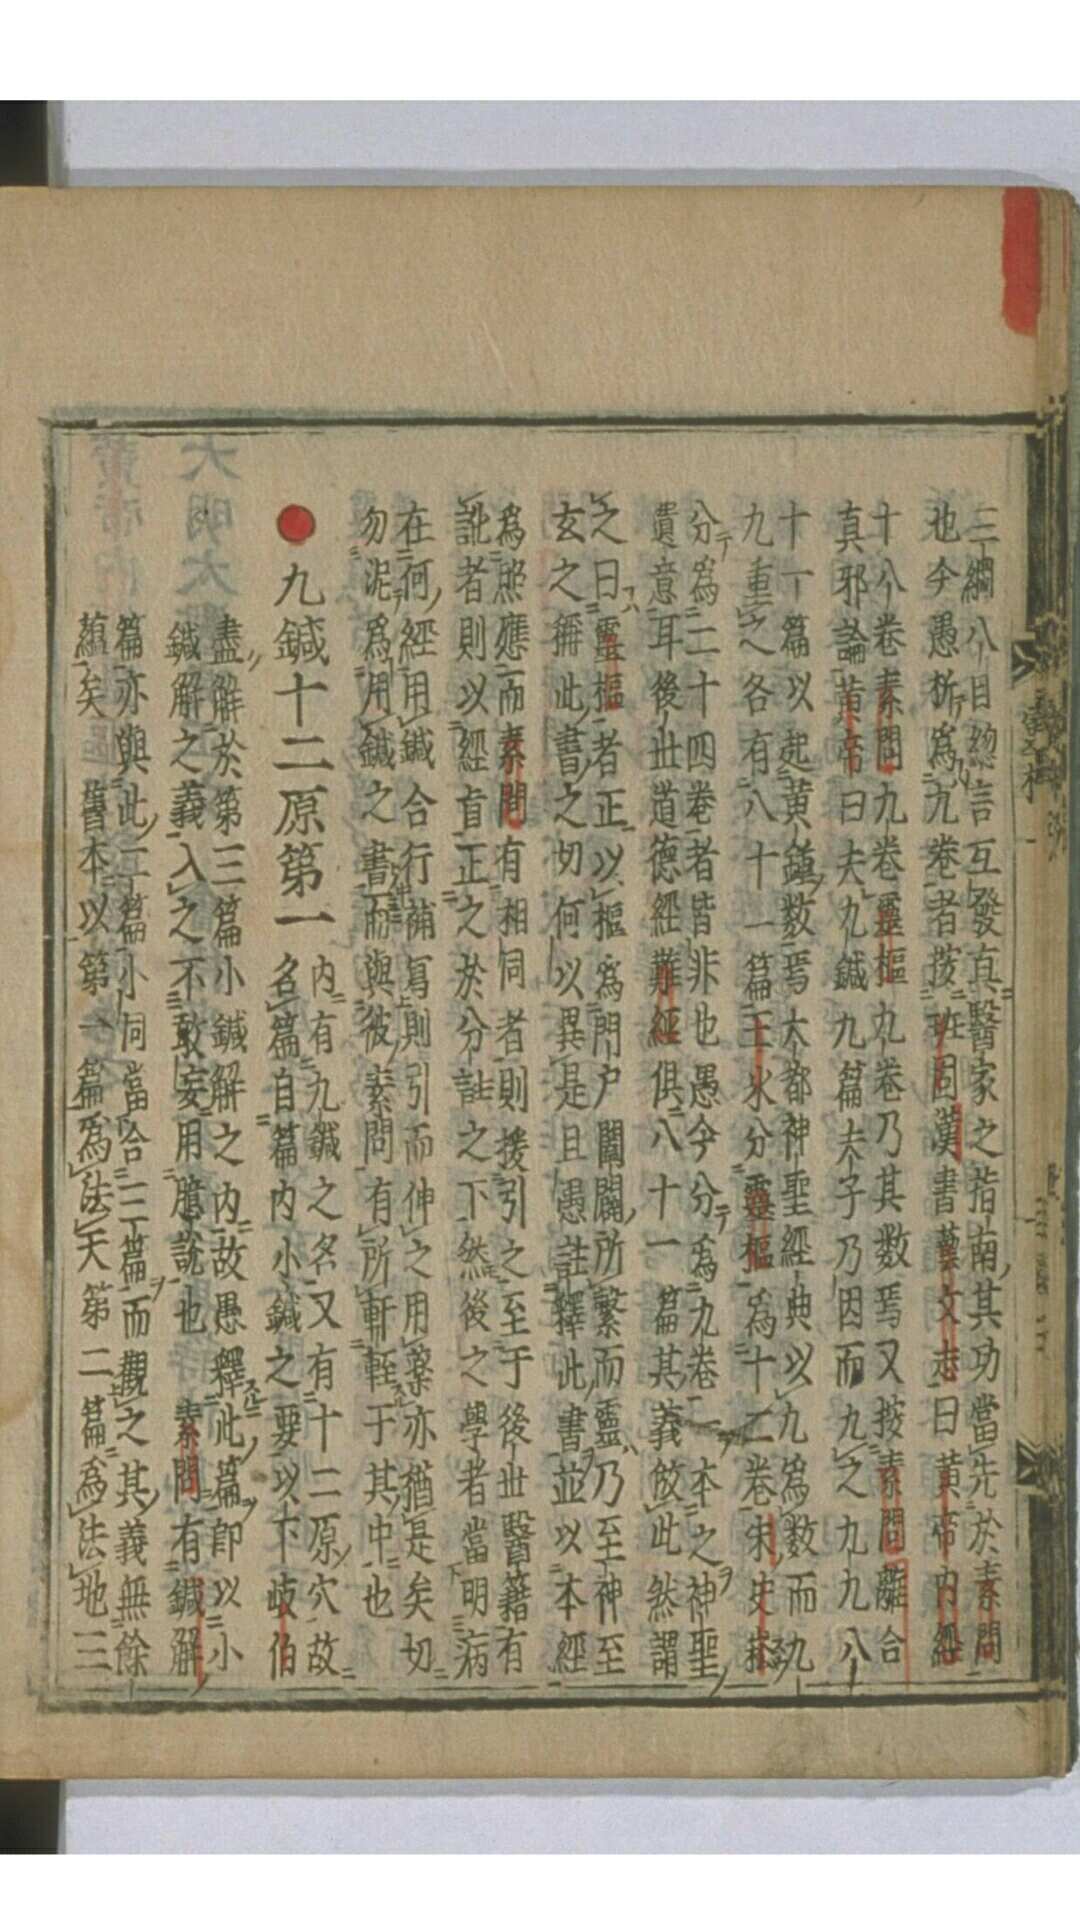 三綱八目總言互發真醫家之指南其功當先於素問
也今愚析為九卷者按班固漢書藝文志曰黃帝內經
十八卷素問九卷靈樞九卷乃其数焉又按素問離合
真邪論黃帝曰夫九鍼九篇夫子乃因而九之九九八
十一篇以起黃鍾数焉大都神聖經典以九為数而九
九重之各有八十一篇王氷分靈樞為十二卷宋史菘
分為二十四卷者皆非也愚今分為九卷一本之神聖
遺意耳後世道德經難經俱八十一篇其義倣此然謂
之曰靈樞者正以樞為門戶闔闢所繫而靈乃至神至
玄之稱此書之切何以異是且愚註釋此書並以本經
為照應而素問有相同者則援引之至于後世醫籍有
訛者則以經旨正之於分註之下然後之學者當明病
在何經用鍼合行補寫則引而伸之用藥亦猶是矣切
勿泥為用鍼之書而與彼素問有所軒輊于其中也
九鍼十二原第一
內有九鍼之名又有十二原穴故
名篇自篇內小鍼之要以下岐伯
盡解於第三篇小鍼解之內故愚釋此篇即以小
鍼解之義入之不敢妄用臆說也 素問有鍼解
篇亦與此二篇小同當合三篇而觀之其義無餘
蘊矣 舊本以第一篇為法天第二篇為法地三